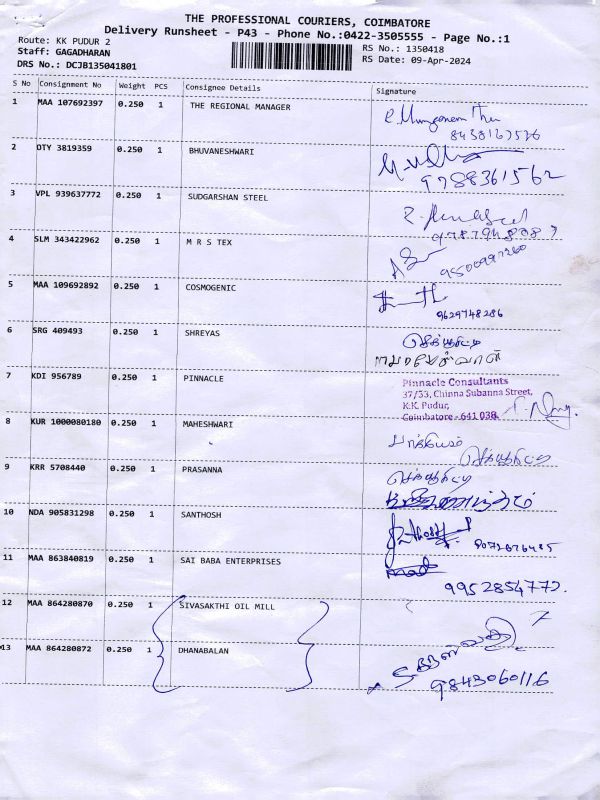 THE PROFESSIONAL COURIERS, COIMBATORE
Delivery Runsheet - P43 - Phone No.:0422-3505555 - Page No.:1
Route: KK PUDUR 2
Staff: GAGADHARAN
DRS No.: DCJB135041801
RS No.: 1350418
RS Date: 09-Apr-2024
S No Consignment No Weight PCS Consignee Details Signature
1 MAA 107692397 0.250 1 THE REGIONAL MANAGER
2 OTY 3819359 0.250 1 BHUVANESHWARI
9788361562
3 VPL 939637772 0.250 1 SUDGARSHAN STEEL
4 SLM 343422962 0.250 1 M R S TEX
5 MAA 109692892 0.250 1 COSMOGENIC
9629748286
6 SRG 409493 0.250 1 SHREYAS
7 KDI 956789 0.250 1 PINNACLE
Pinnacle Consultants
37/33, Chinna Subanna Street,
K.K. Pudur,
Coimbatore - 641 038.
8 KUR 1000080180 0.250 1 MAHESHWARI
9 KRR 5708440 0.250 1 PRASANNA
10 NDA 905831298 0.250 1 SANTHOSH
11 MAA 863840819 0.250 1 SAI BABA ENTERPRISES
9952854772.
12 MAA 864280870 0.250 1 SIVASAKTHI OIL MILL
13 MAA 864280872 0.250 1 DHANABALAN
9843060116